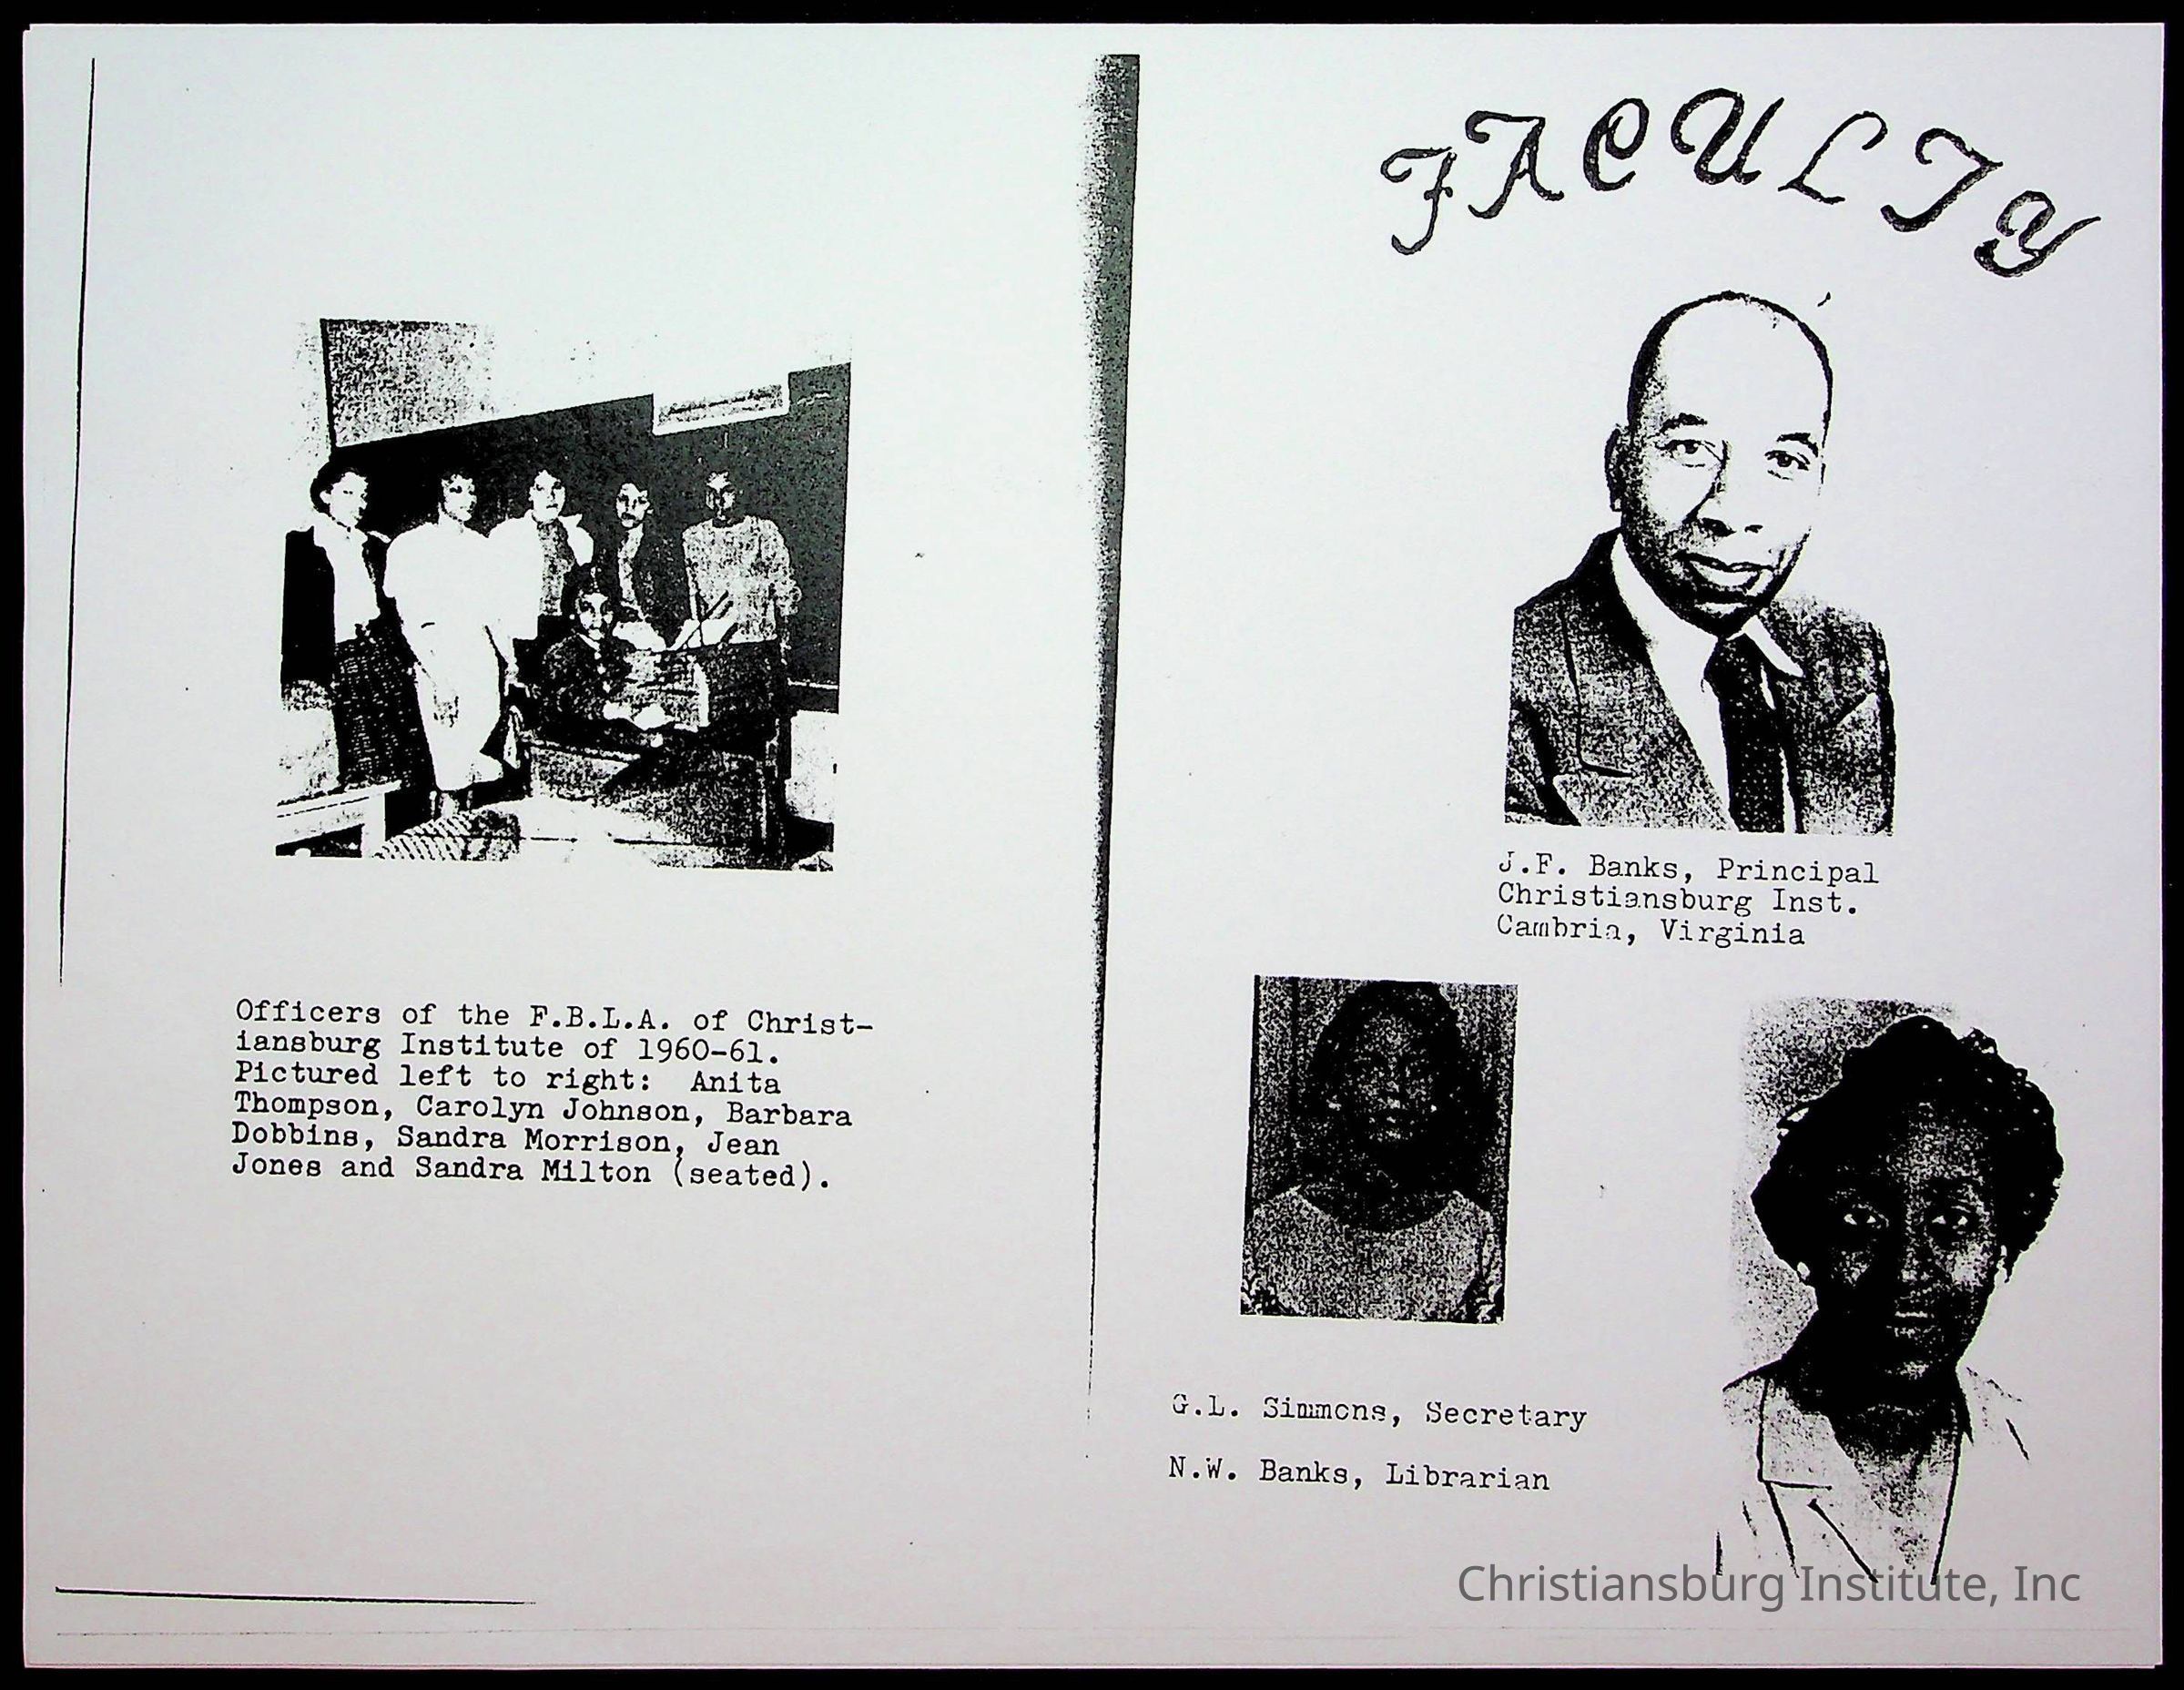 Officers of the F.B.L.A. of Christ-
iansburg Institute of 1960-61.
Pictured left to right: Anita
Thompson, Carolyn Johnson, Barbara
Dobbins, Sandra Morrison, Jean
Jones and Sandra Milton (seated).
FACULTY
J.F. Banks, Principal
Christiansburg Inst.
Cambria, Virginia
G.L. Simmons, Secretary
N.W. Banks, Librarian
Christiansburg Institute, Inc